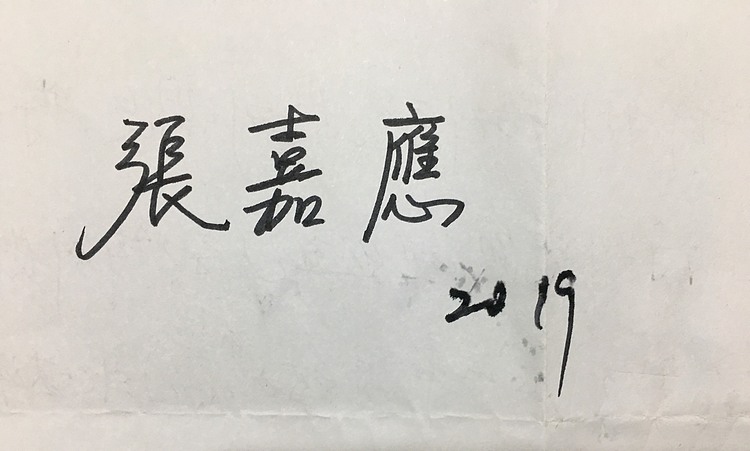 張嘉應
2019